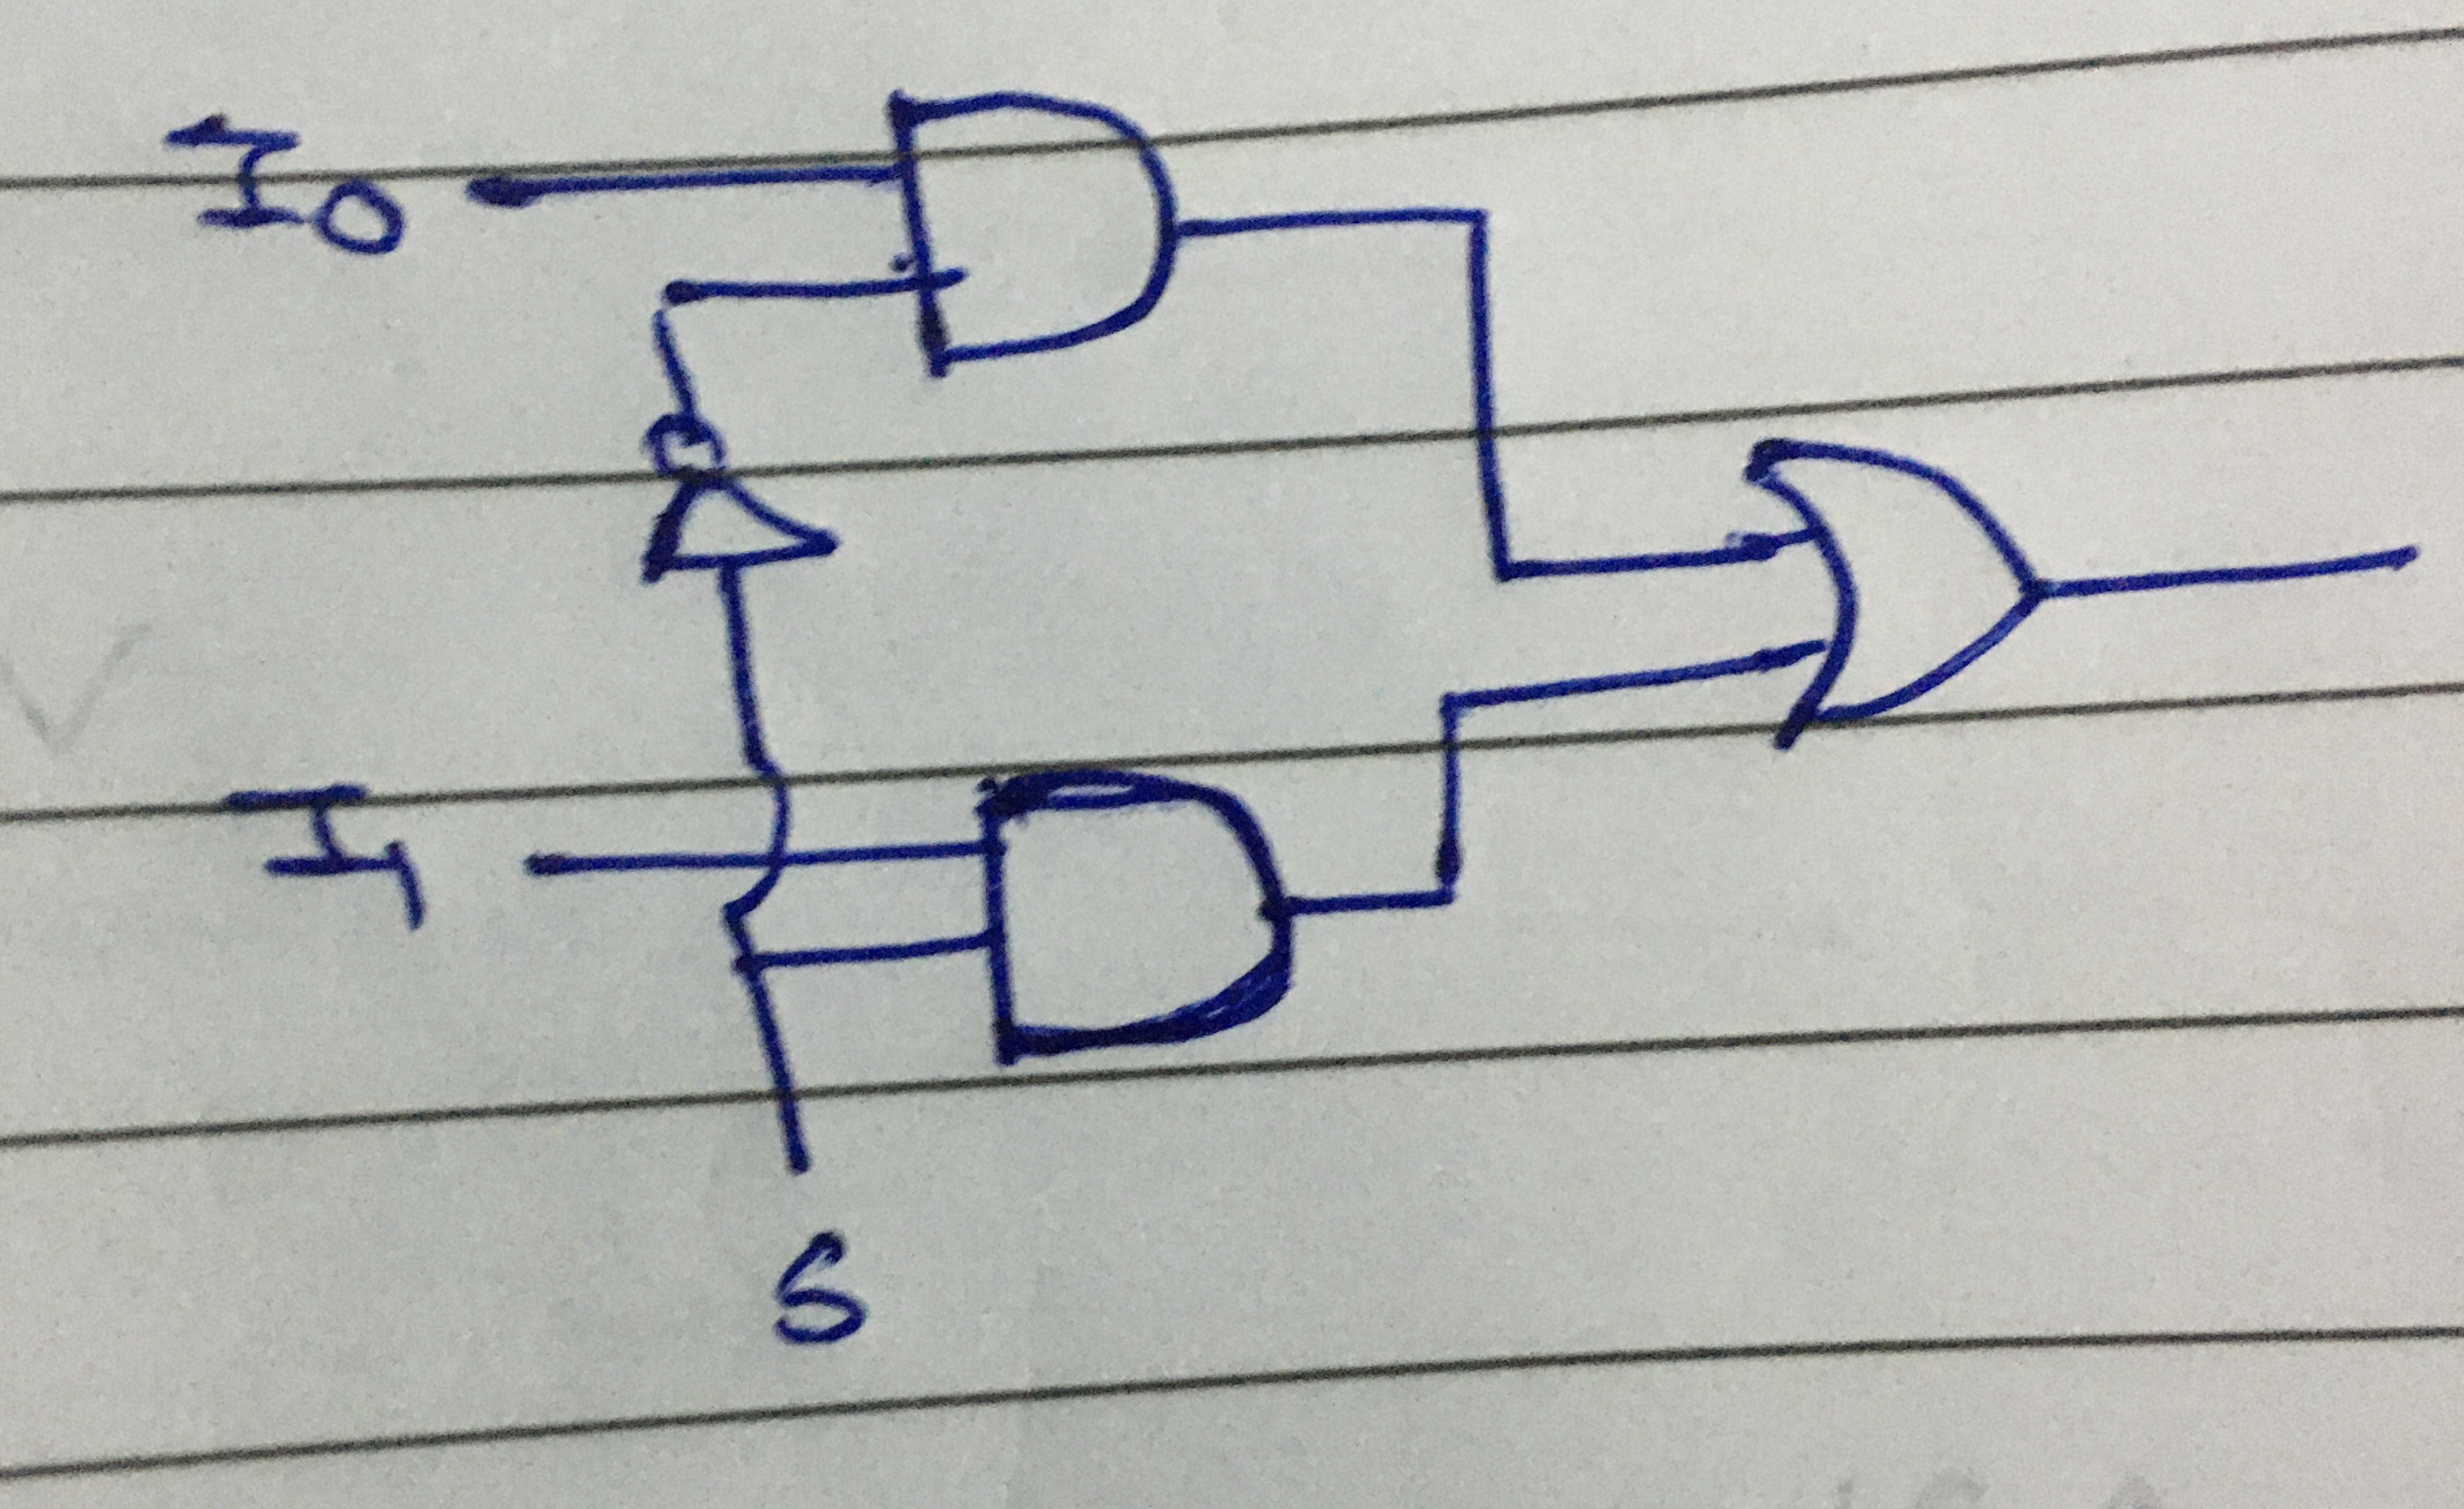 I0
I1
S